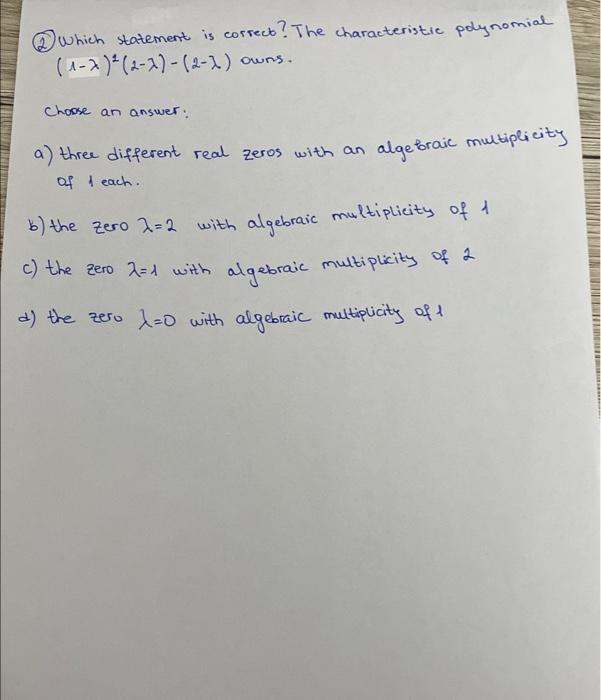 ② Which statement is correct? The characteristic polynomial
(1-λ)²(2-λ)-(2-λ) owns.
Choose an answer:
a) three different real zeros with an algebraic multiplicity
of 1 each.
b) the zero λ=2 with algebraic multiplicity of 1
c) the zero λ=1 with algebraic multiplicity of 2
d) the zero λ=0 with algebraic multiplicity of 1